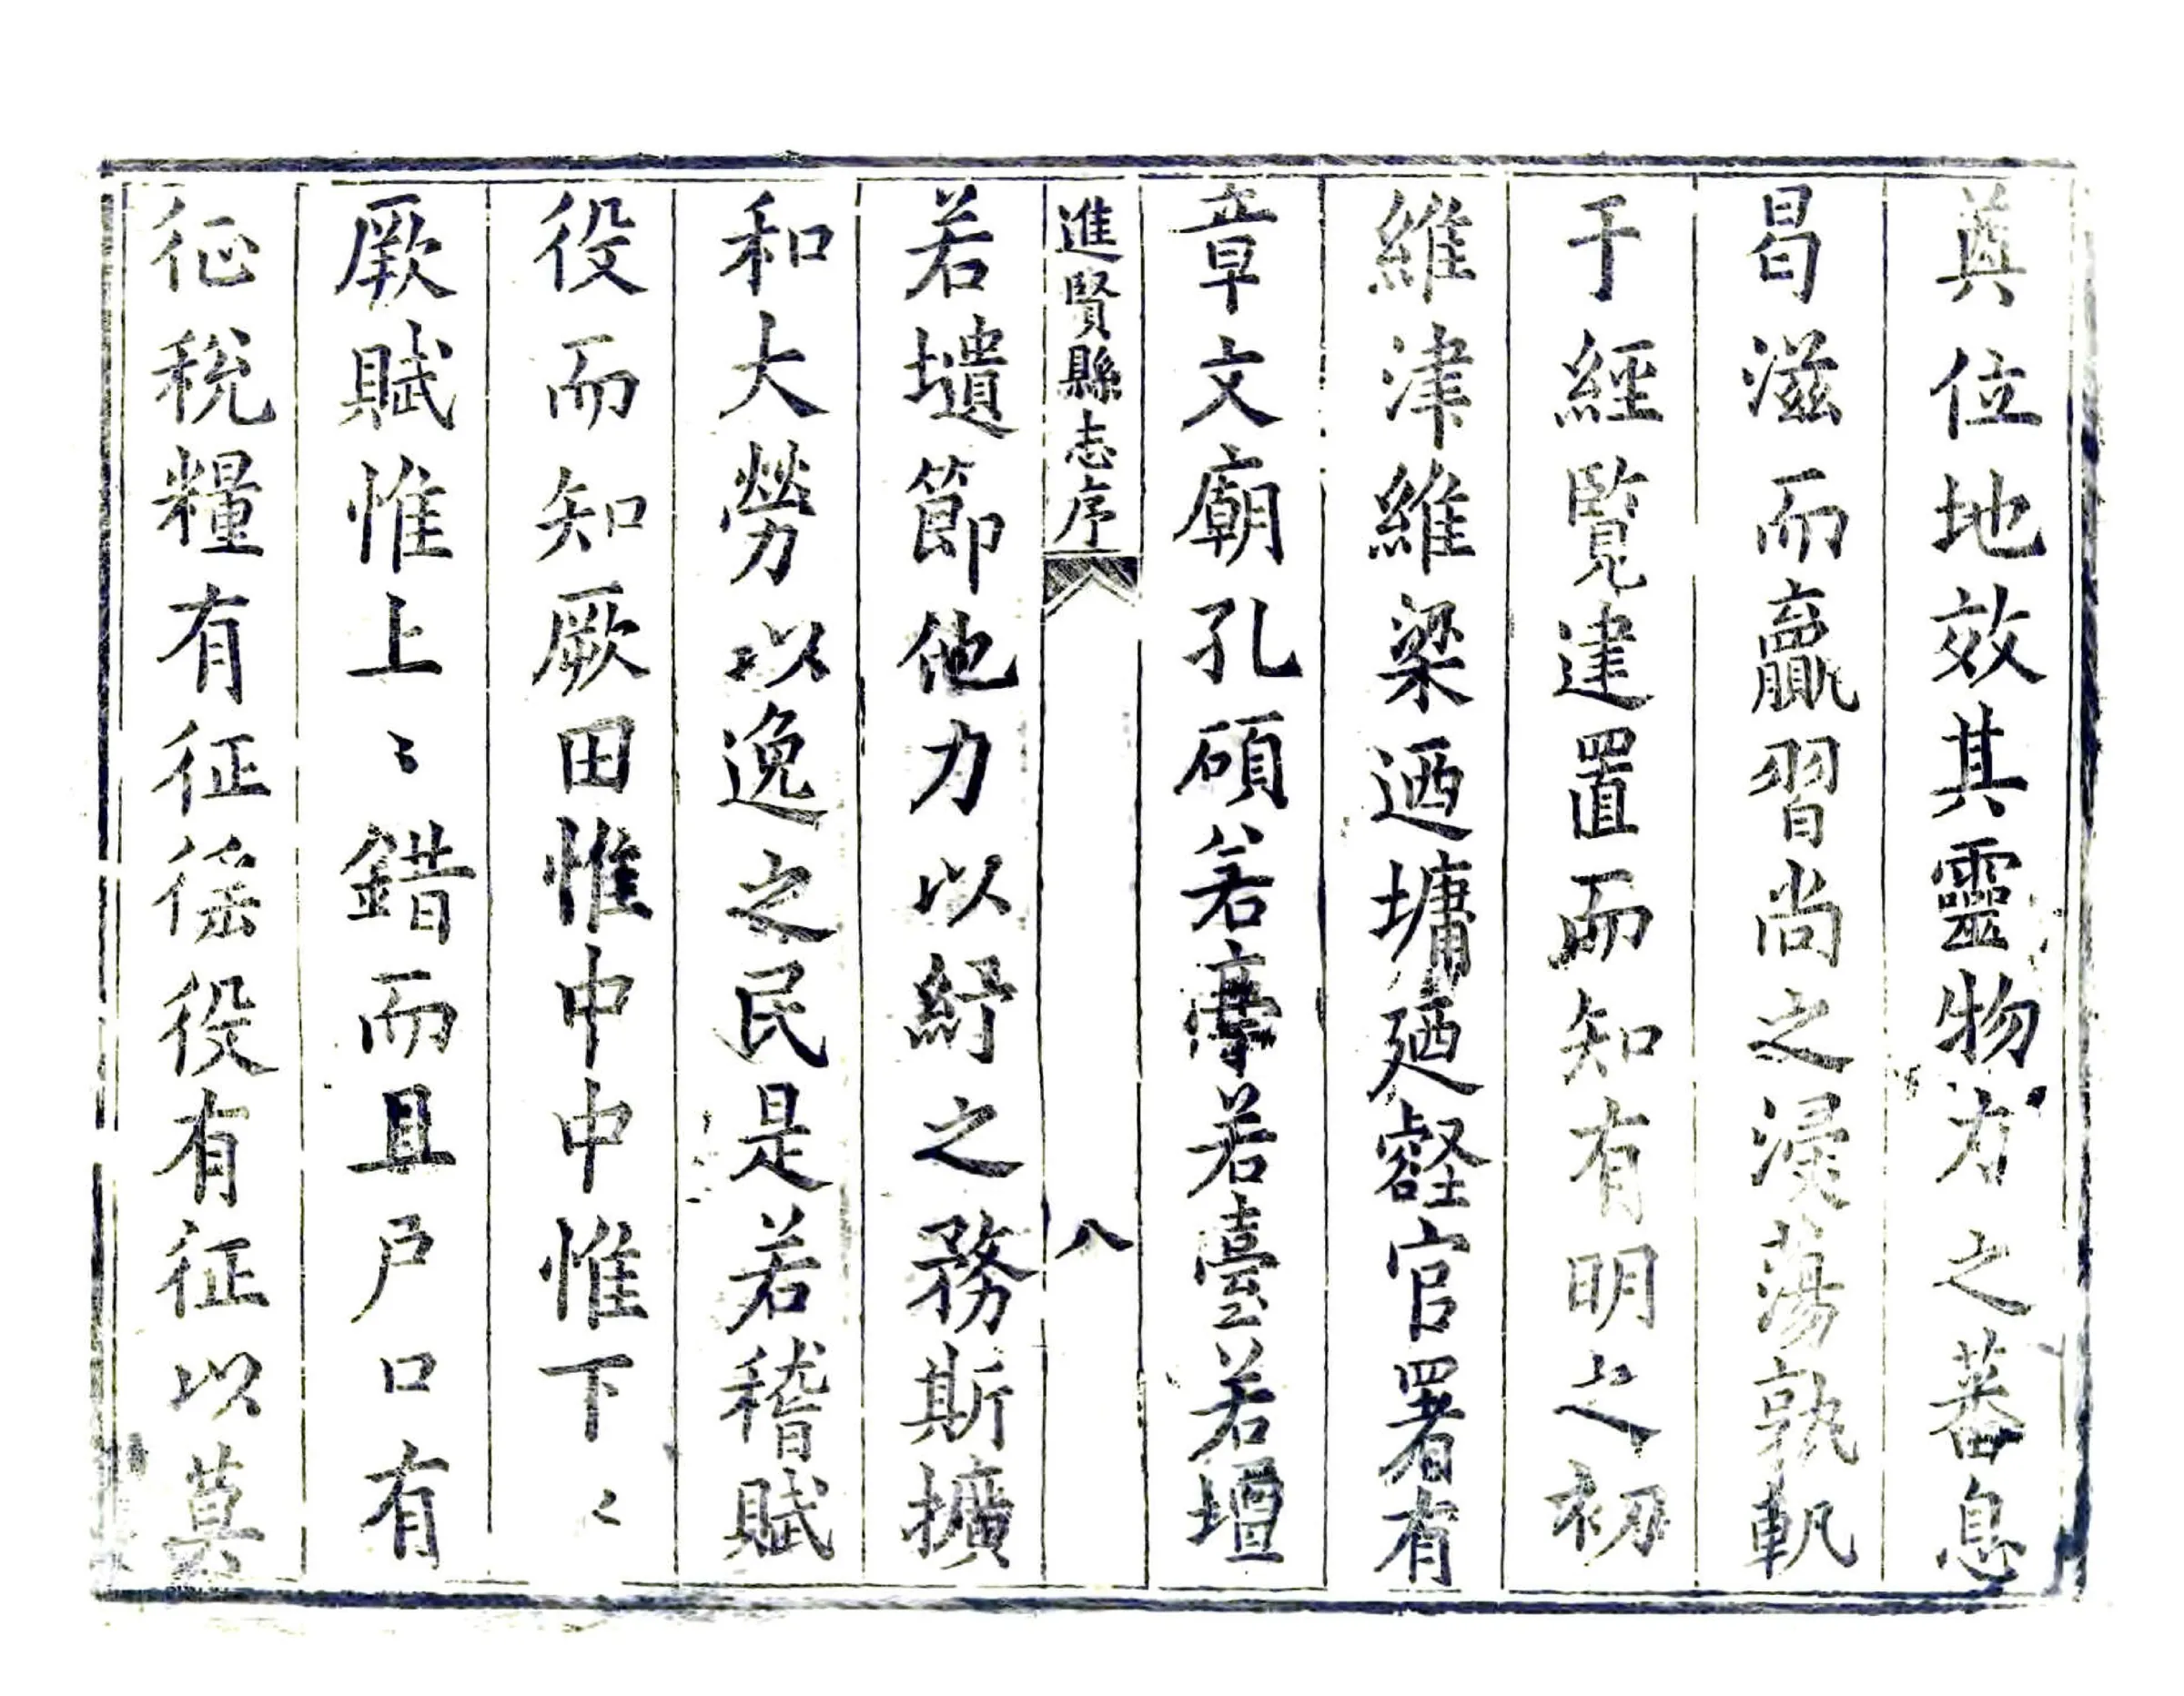 奠位地效其靈物力之蕃息
曷滋而贏習尚之浸蕩孰軌
于經覽建置而知有明之初
維津維梁迺墉廼壑官署有
章文廟孔碩若若臺若壇
進賢縣志序 八
若壝節他力以紓之務斯擴
和大勞以逸之民是若稽賦
役而知厥田惟中中惟下〻
厥賦惟上〻錯而且戶口有
征稅糧有征徭役有征以莫